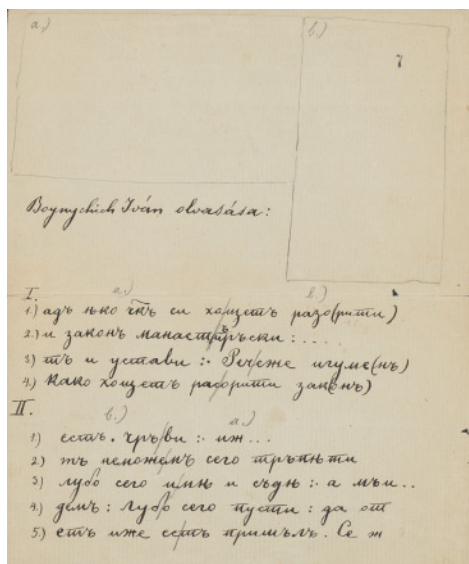 a.) b.)
7
Boynychich Iván olvasása:
I. a.) b.)
1.) адъ ꙗко чк҃ъ си хощетъ разо(рити)
2.) и законъ манастръски : . . . .
3) тъ и устави :· Рече же игуме(нъ)
4.) како хощетъ разорити законъ)
II. b.) a.)
1.) естъ . чръви :· иж ...
2) тъ сего трьпѣти
3) лубо сего и сьдѣ :· а мъи ..
4.) демъ : лубо сего пусти : да от
5.) етъ иже естъ пришълъ . Се ж